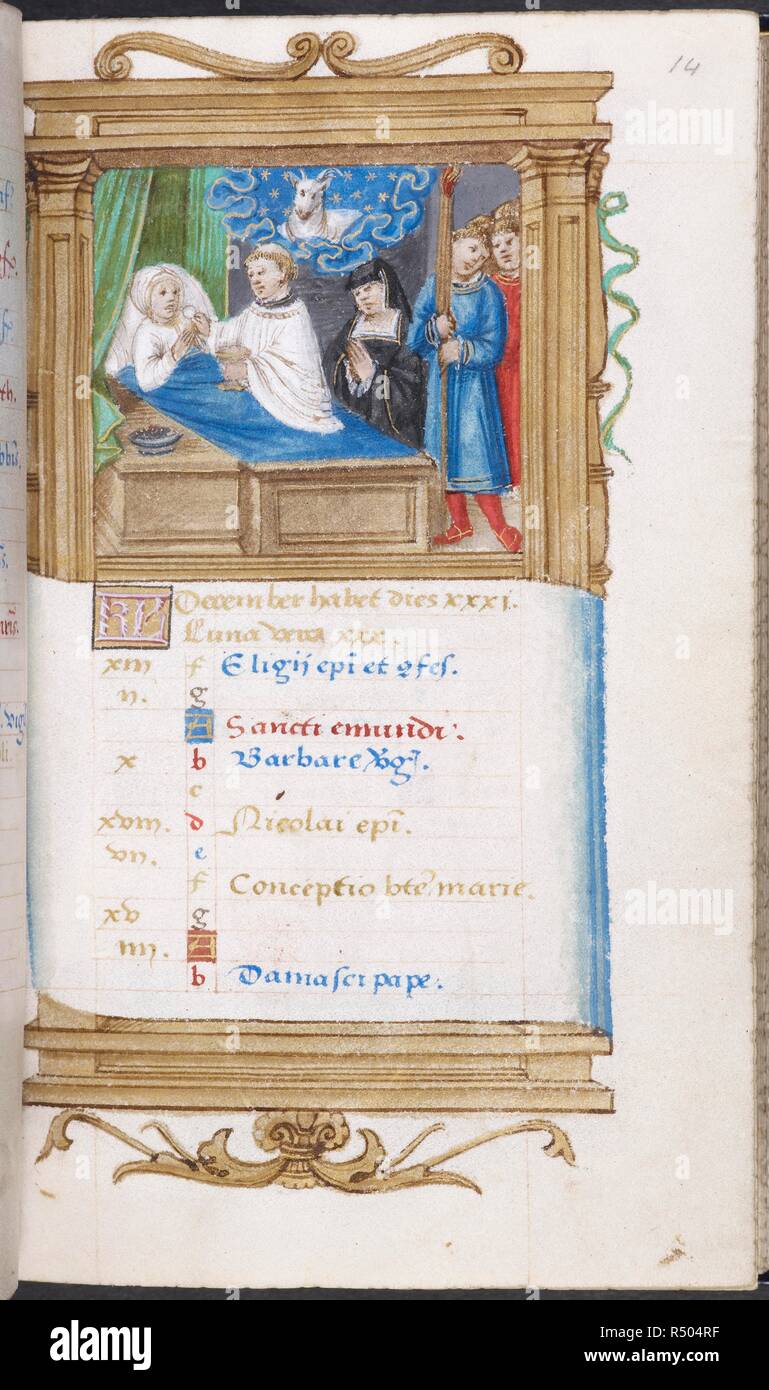 14
KL December habet dies xxxi.
Luna vero xxx.
xiii f Eligij epi et cfes.
ii. g
A Sancti emundi.
x b Barbare vgi.
c
xviii. d Nicolai epi.
vii. e
f Conceptio bte marie.
xv g
iiii. A
b Damasci pape.
alamy
Image ID: R504RF
www.alamy.com